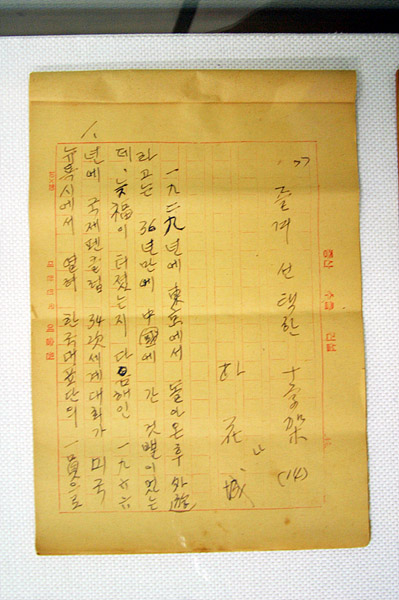 즐겨 선택한 十字架 (14)
朴花城
一九二九년에 東京에서 돌아온 후 外遊
라고는 36년만에 中國에 간 것뿐이었는
데, 늦福이 터졌는지 다음해인 一九六六
년에 국제펜클럽 34次세계대회가 미국
뉴욕시에서 열려 한국대표단의 一員으로
증산 수출 건설
대한민국 예술원